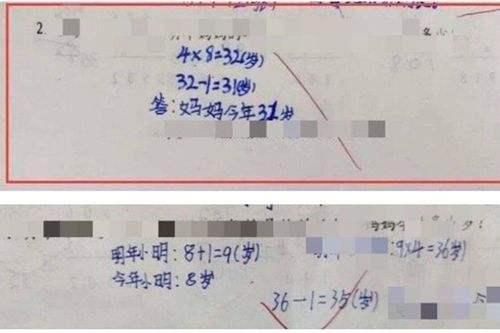 2.
4×8=32(岁)
32-1=31(岁)
答:妈妈今年31岁
明年小明:8+1=9(岁)
:9×4=36岁)
今年小明:8岁
36-1=35(岁)